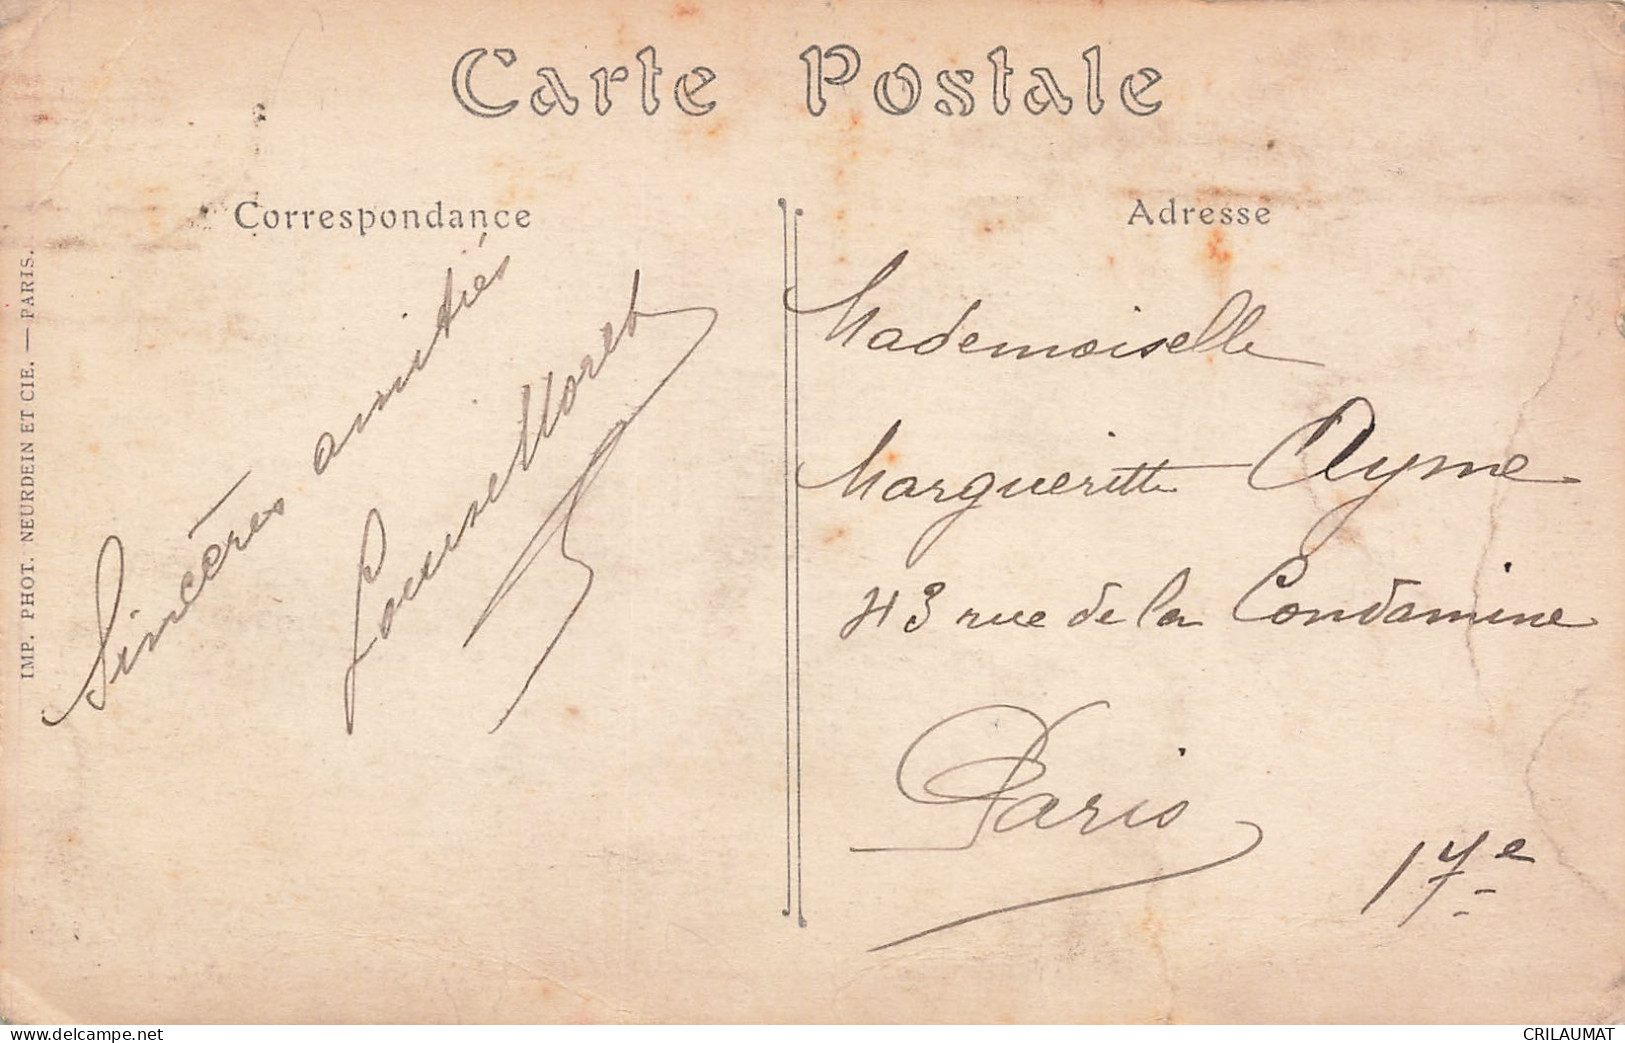 Carte Postale
Correspondance
Adresse
IMP. PHOT. NEURDEIN ET CIE. — PARIS.
Sincères amitiés
Louise Moret
Mademoiselle
Margueritte Ayme
43 rue de la Condamine
Paris
17e
www.delcampe.net
CRILAUMAT